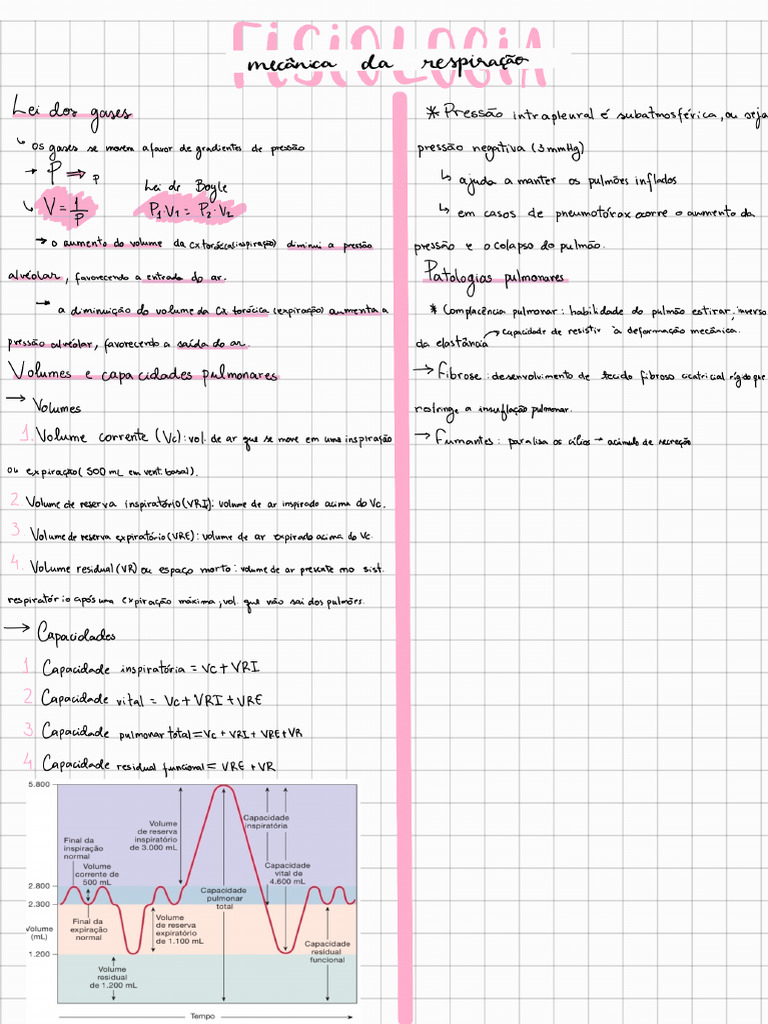 FISIOLOGIA
mecânica da respiração
Lei dos gases
↳ os gases se movem a favor de gradientes de pressão
→ P ⇒ P
Lei de Boyle
↳ V = 1/P
P₁·V₁ = P₂·V₂
→ o aumento do volume da cx torácica (inspiração) diminui a pressão
alveolar, favorecendo a entrada do ar.
→ a diminuição do volume da cx torácica (expiração) aumenta a
pressão alveolar, favorecendo a saída do ar.
Volumes e capacidades pulmonares
→ Volumes
1. Volume corrente (Vc): vol. de ar que se move em uma inspiração
ou expiração (500 mL em vent. basal).
2. Volume de reserva inspiratório (VRI): volume de ar inspirado acima do Vc.
3 Volume de reserva expiratório (VRE): volume de ar expirado acima do Vc.
4. Volume residual (VR) ou espaço morto: volume de ar presente no sist.
respiratório após uma expiração máxima, vol. que não sai dos pulmões.
→ Capacidades
1 Capacidade inspiratória = Vc + VRI
2 Capacidade vital = Vc + VRI + VRE
3 Capacidade pulmonar total = Vc + VRI + VRE + VR
4. Capacidade residual funcional = VRE + VR
5.800
2.800
2.300
Volume
(mL)
1.200
Final da
inspiração
normal
Volume
corrente de
500 mL
Volume
de reserva
inspiratório
de 3.000 mL
Capacidade
inspiratória
Capacidade
vital de
4.600 mL
Capacidade
pulmonar
total
Final da
expiração
normal
Volume
de reserva
expiratório
de 1.100 mL
Capacidade
residual
funcional
Volume
residual
de 1.200 mL
Tempo
* Pressão intrapleural é subatmosférica, ou seja
pressão negativa (3 mmHg)
↳ ajuda a manter os pulmões inflados
↳ em casos de pneumotórax ocorre o aumento da
pressão e o colapso do pulmão.
Patologias pulmonares
* Complacência pulmonar: habilidade do pulmão estirar, inverso
da elastância → capacidade de resistir à deformação mecânica.
→ Fibrose: desenvolvimento de tecido fibroso cicatricial rígido que
restringe a insuflação pulmonar.
→ Fumantes: paralisa os cílios → acúmulo de secreção